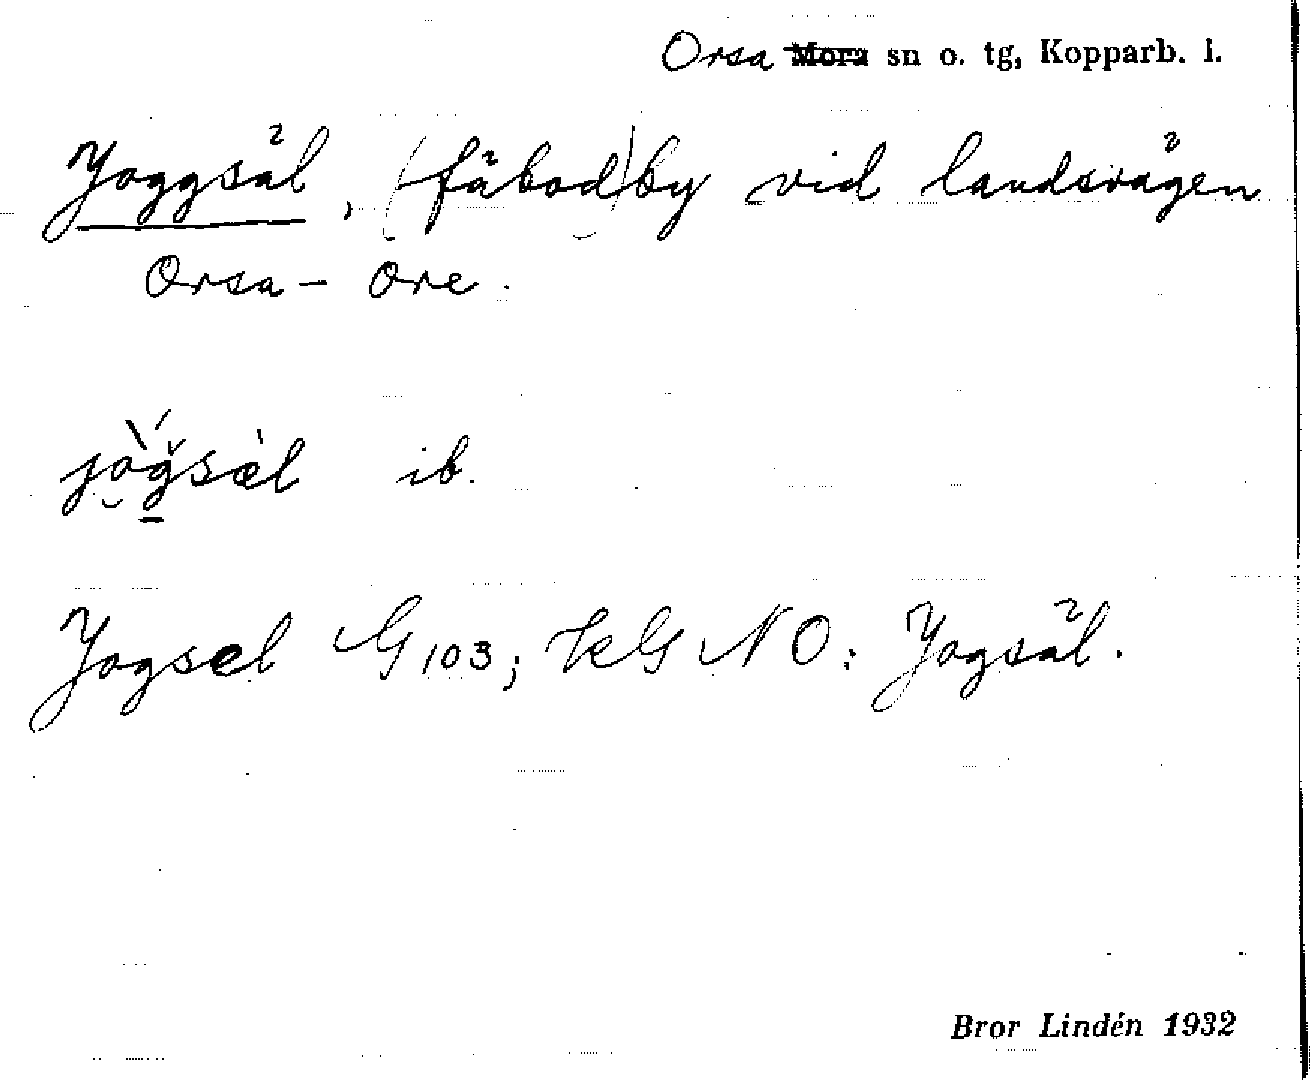 Orsa Mora sn o. tg, Kopparb. l.
Joggsäl, (fäbod)by vid landsvägen
Orsa - Ore.
ib.
Jogsel G 103; KG NO: Jogsäl.
Bror Lindén 1932